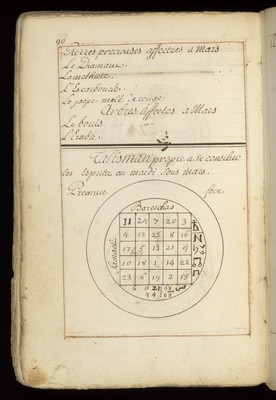 90
Pierres precieuses affectées a Mars
Le Diamant.
L'amethiste.
L'Escarboucle.
Le jaspe mêlé de rouge.
Arbres affectés a Mars
Le bouis
L'Erable.
Talisman propre a se concilier
les Esprits au mardi sous mars.
Premiere face
Barzachas
11 24 7 20 3
4 12 25 8 16
17 5 13 21 9
10 18 1 14 22
23 6 19 2 15